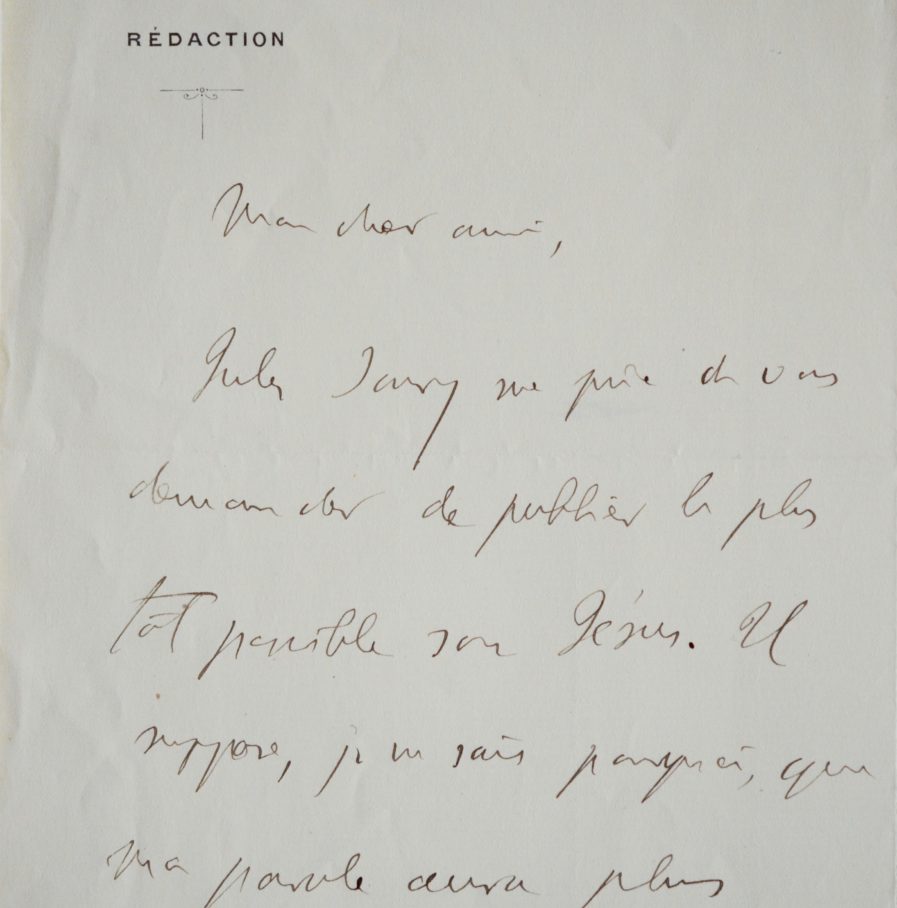 RÉDACTION
Mon cher ami,
Jules Soury me prie de vous
demander de publier le plus
tôt possible son Jésus. Il
suppose, je ne sais pourquoi, que
ma parole aura plus